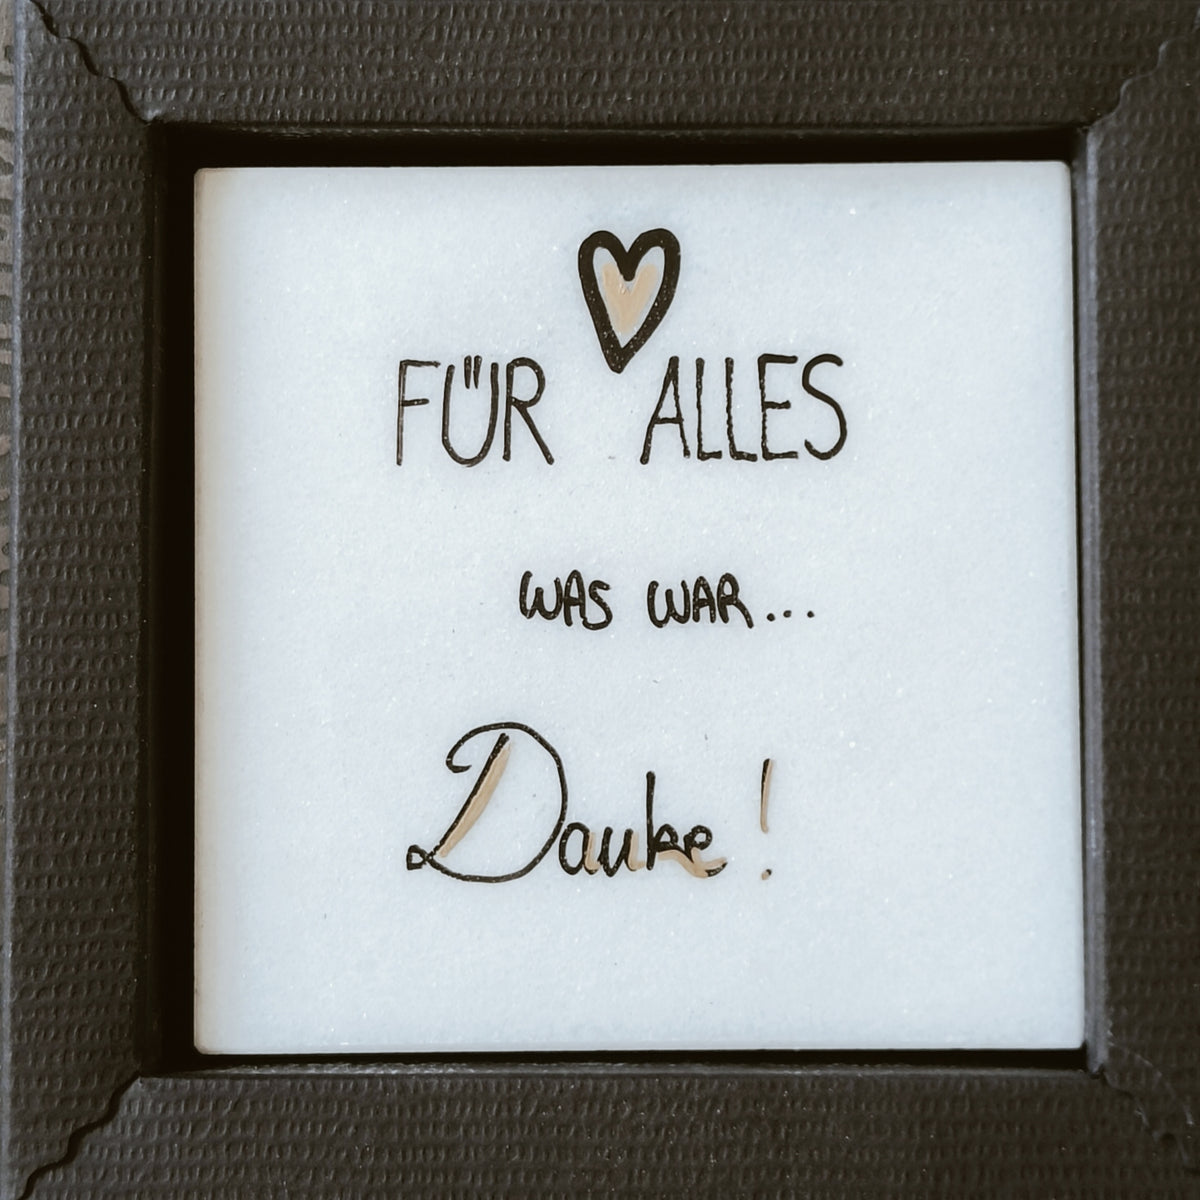 FÜR ALLES
WAS WAR...
Danke!